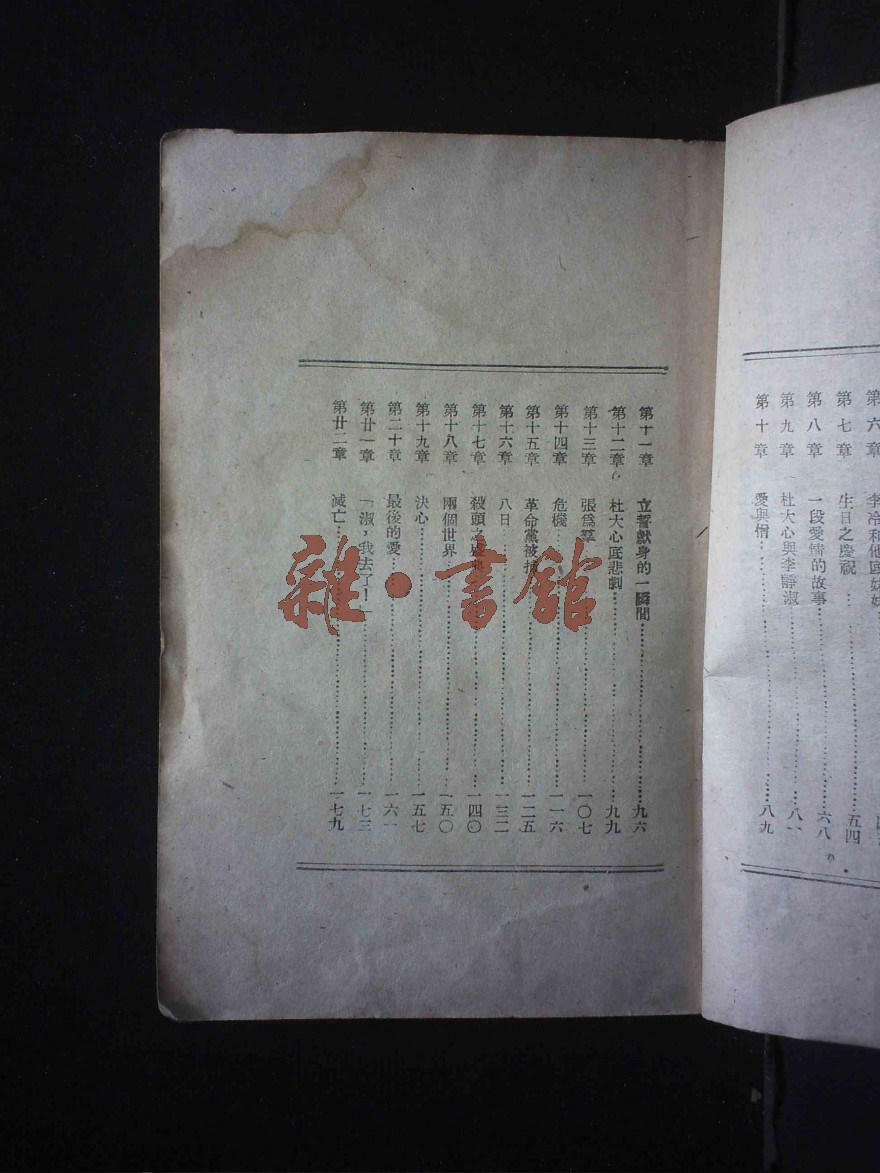 第六章 李冷和他底妹妹
第七章 生日之慶祝 五四
第八章 一段愛情的故事 六八
第九章 杜大心與李靜淑 八一
第十章 愛與憎 八九
第十一章 立誓獻身的一瞬間 九六
第十二章 杜大心底悲劇 九九
第十三章 張爲羣 一〇七
第十四章 危機 一一六
第十五章 革命黨被捕 一二五
第十六章 八日 一三二
第十七章 殺頭之盛典 一四〇
第十八章 兩個世界 一五〇
第十九章 決心 一五七
第二十章 最後的愛 一六一
第廿一章 「淑，我去了！」 一七三
第廿二章 滅亡 一七九
雜·書館